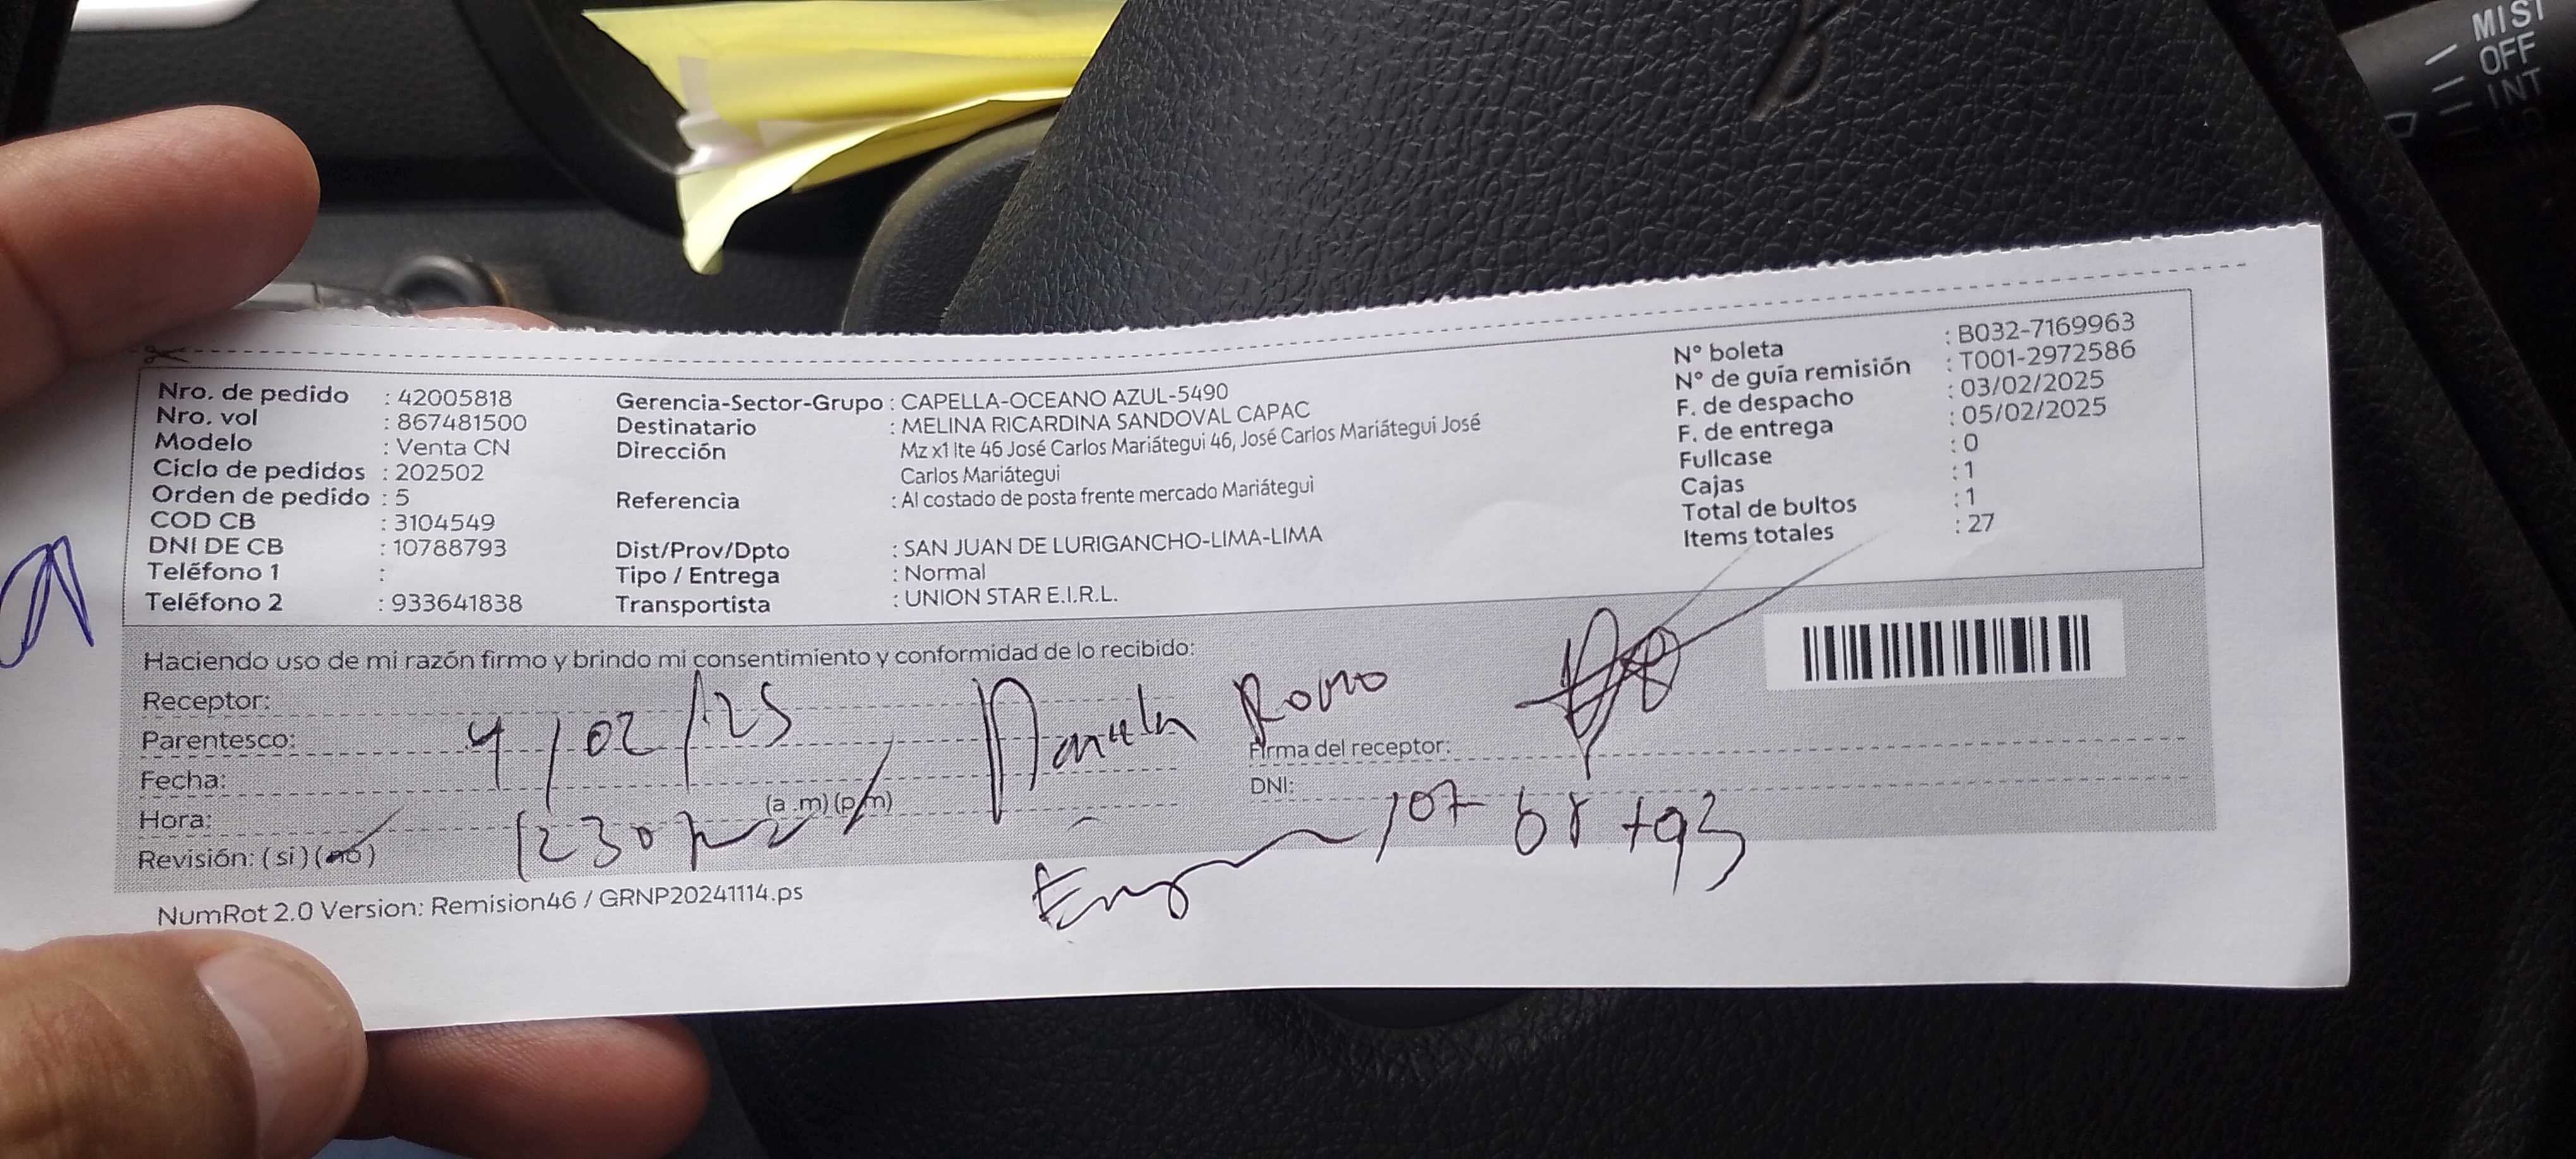 MIST
OFF
INT
Nro. de pedido : 42005818
Nro. vol : 867481500
Modelo : Venta CN
Ciclo de pedidos : 202502
Orden de pedido : 5
COD CB : 3104549
DNI DE CB : 10788793
Teléfono 1 :
Teléfono 2 : 933641838
Gerencia-Sector-Grupo : CAPELLA-OCEANO AZUL-5490
Destinatario : MELINA RICARDINA SANDOVAL CAPAC
Dirección Mz x1 lte 46 José Carlos Mariátegui 46, José Carlos Mariátegui José
Carlos Mariátegui
Referencia : Al costado de posta frente mercado Mariátegui
Dist/Prov/Dpto : SAN JUAN DE LURIGANCHO-LIMA-LIMA
Tipo / Entrega : Normal
Transportista : UNION STAR E.I.R.L.
N° boleta : B032-7169963
N° de guía remisión : T001-2972586
F. de despacho : 03/02/2025
F. de entrega : 05/02/2025
Fullcase : 0
Cajas : 1
Total de bultos : 1
Items totales : 27
Haciendo uso de mi razón firmo y brindo mi consentimiento y conformidad de lo recibido:
Receptor:
Parentesco:
4/02/25
Fecha:
Firma del receptor:
DNI:
Hora: (a .m) (p.m)
1230
Revisión: (si) (no)
NumRot 2.0 Version: Remision46 / GRNP20241114.ps